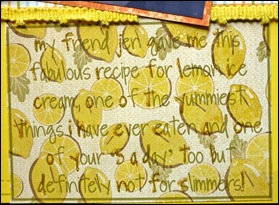 my friend jen gave me this
fabulous recipe for lemon ice
cream, one of the yummiest
things i have ever eaten and one
of your '5 a day' too but
definitely not for slimmers!